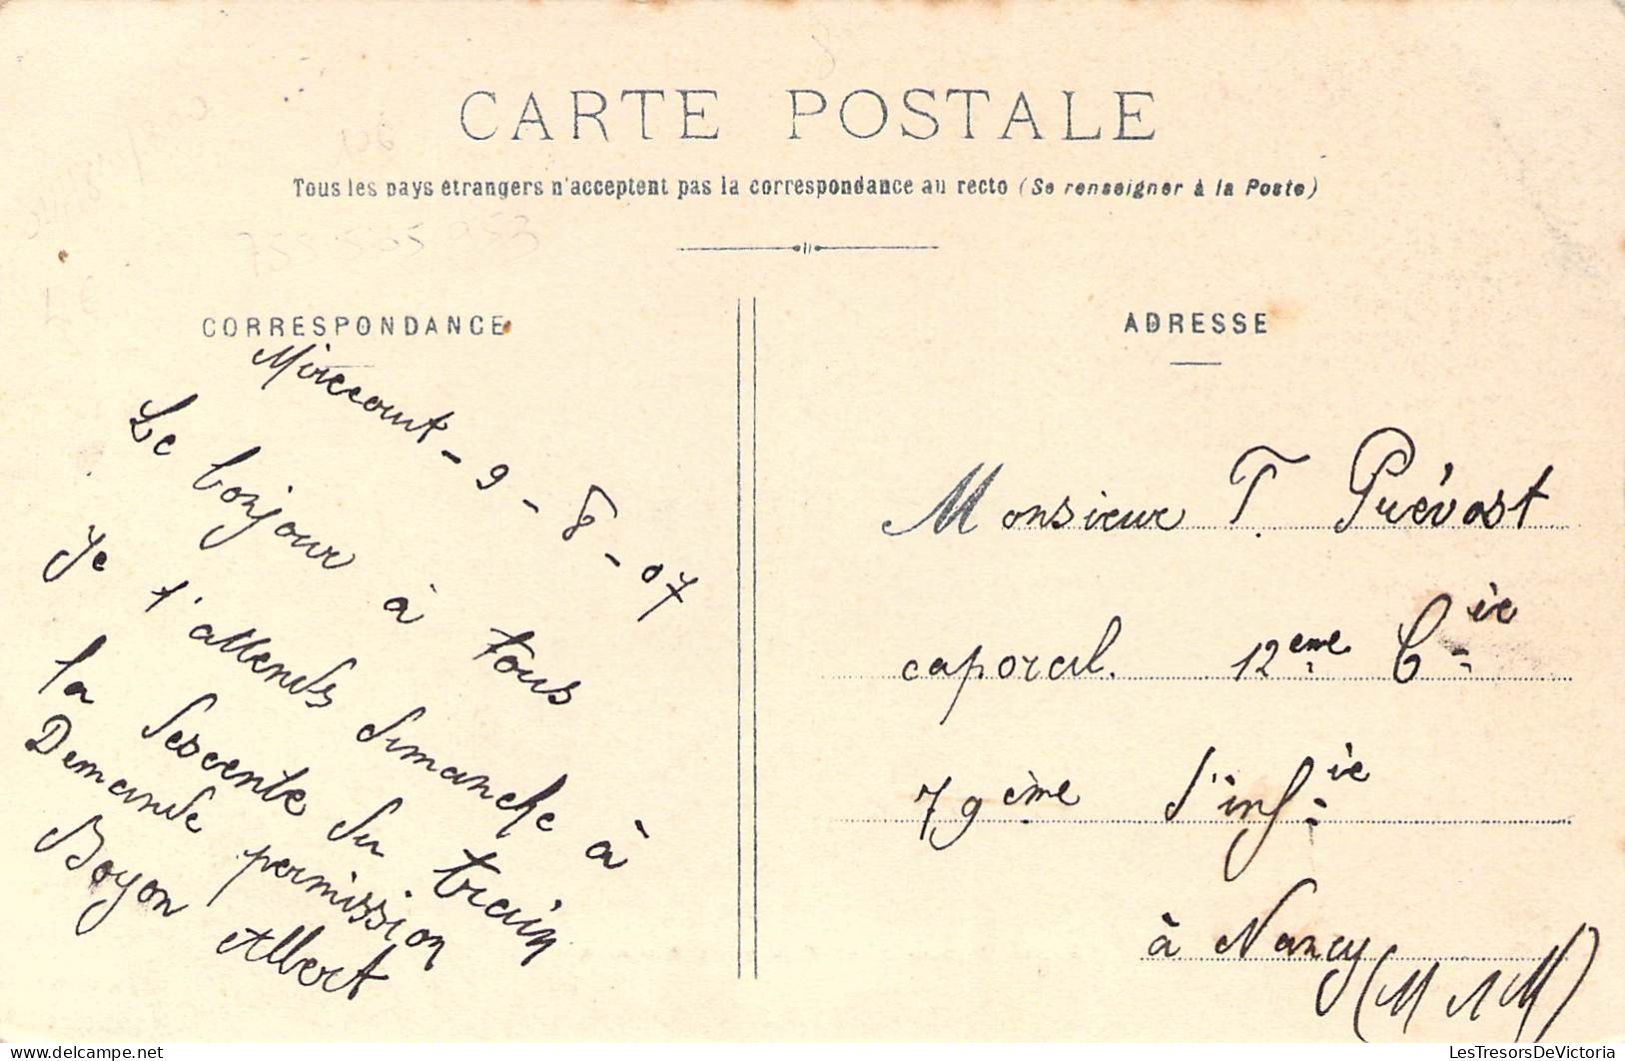 CARTE POSTALE
Tous les pays étrangers n'acceptent pas la correspondance au recto (Se renseigner à la Poste)
CORRESPONDANCE
Mirecourt - 9 - 8 - 07
Le bonjour à tous
Je t'attends dimanche à
la descente du train
Demande permission
Boyon Albert
ADRESSE
Monsieur T. Prévost
caporal. 12eme Cie
79ème d'infie
à Nancy (M et M)
LesTresorsDeVictoria